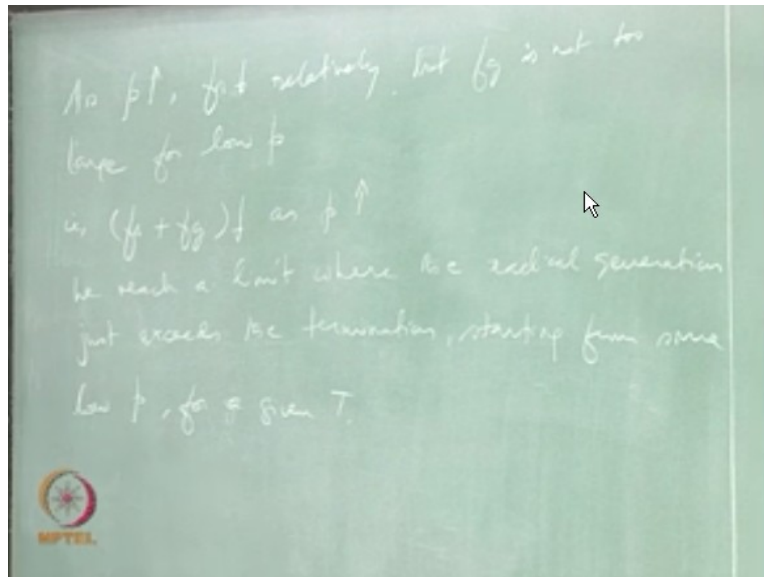 As p↑, fs↓ relatively, but fg is not too
large for low p
ie, (fs + fg)↓ as p↑
We reach a limit where the radical generation
just exceeds the termination, starting from some
low p, for a given T.
NPTEL